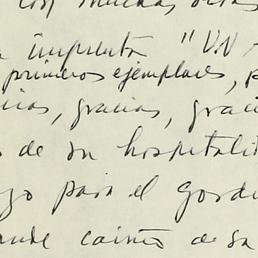 con muchas
imprenta "UN
primeros ejemplares, p
cias, gracias, graci
s de su hospitali
go para el gordi
ande cariño de su